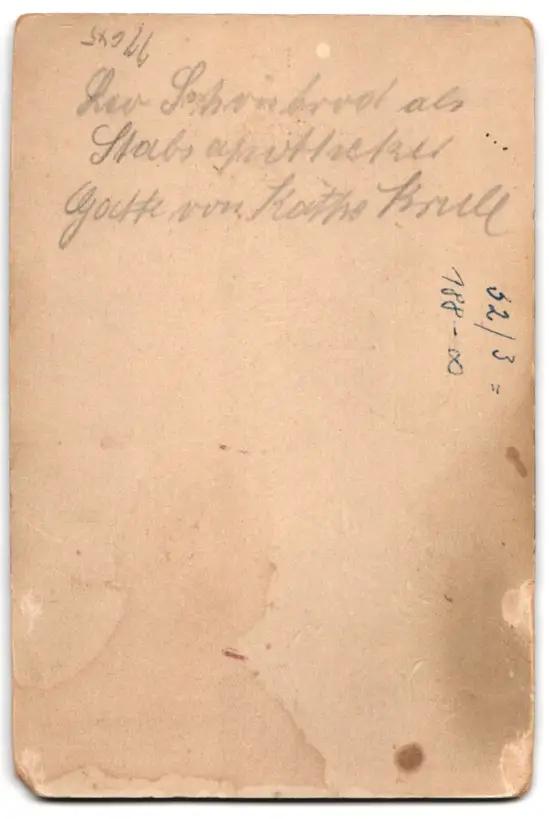 Leo Schönbrod als
Stabsapotheker
Gatte von Käthe Krull
32/3 =
188-∞